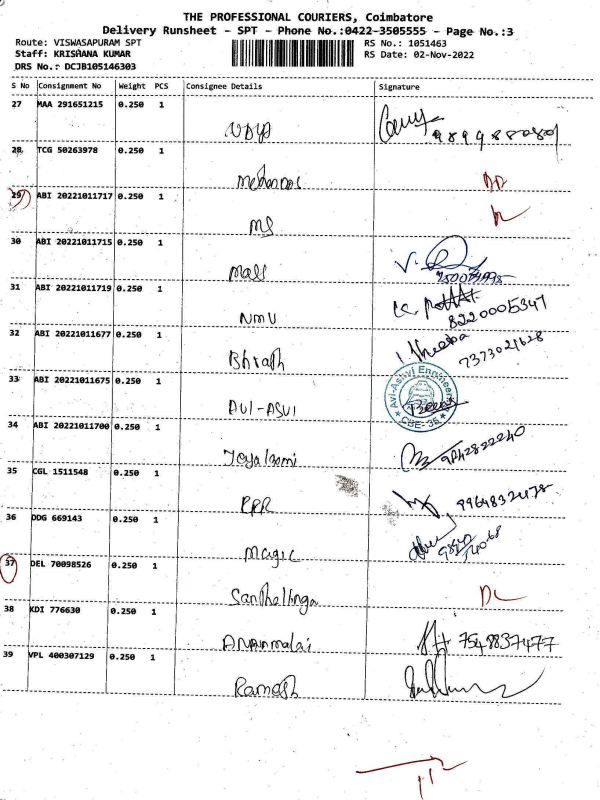 THE PROFESSIONAL COURIERS, Coimbatore
Delivery Runsheet - SPT - Phone No.:0422-3505555 - Page No.:3
Route: VISWASAPURAM SPT RS No.: 1051463
Staff: KRISHANA KUMAR RS Date: 02-Nov-2022
DRS No.: DCJB105146303
S No Consignment No Weight PCS Consignee Details Signature
27 MAA 291651215 0.250 1
9894988080
28 TCG 50263978 0.250 1
29 ABI 20221011717 0.250 1
MS
30 ABI 20221011715 0.250 1
Mass
31 ABI 20221011719 0.250 1
NMU 8220005347
32 ABI 221011677 0.250 1
Bhrath 7373021628
33 ABI 20221011675 0.250 1
AVI-ASVI Avi-Ashvi Engineer CBE-35
34 ABI 20221011700 0.250 1
9842822240
35 CGL 1511548 0.250 1
PPR 9964832478
36 DDG 669143 0.250 1
Magic
37 DEL 70098526 0.250 1
Santhalinga DL
38 KDI 776630 0.250 1
Annamalai 7548837477
39 VPL 400307129 0.250 1
Ramesh